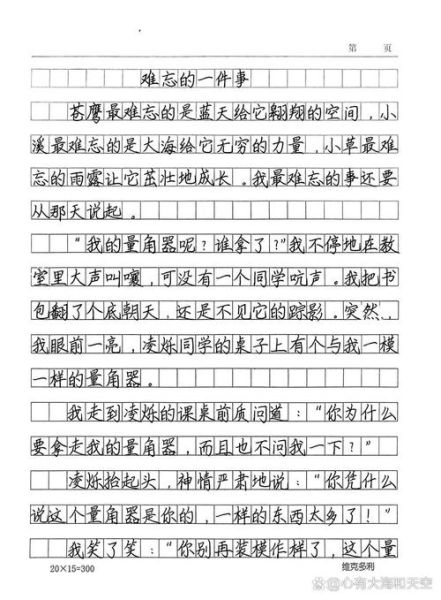 第 页
难忘的一件事
苍鹰最难忘的是蓝天给它翱翔的空间，小
溪最难忘的是大海给它无穷的力量，小草最难
忘的雨露让它茁壮地成长。我最难忘的事还要
从那天说起。
“我的量角器呢？谁拿了？”我不停地在教
室里大声叫嚷，可没有一个同学吭声。我把书
包翻了个底朝天，还是不见它的踪影。突然，
我眼前一亮，凌烁同学的桌子上有个与我一模
一样的量角器。
我走到凌烁的课桌前质问道：“你为什么
要拿走我的量角器，而且也不问我一下？”
凌烁抬起头，神情严肃地说：“你凭什么
说这个量角器是你的，一样的东西太多了！”
我笑了笑：“你别再装模作样了，这个量
20×15=300 维克多利
@心有大海和天空